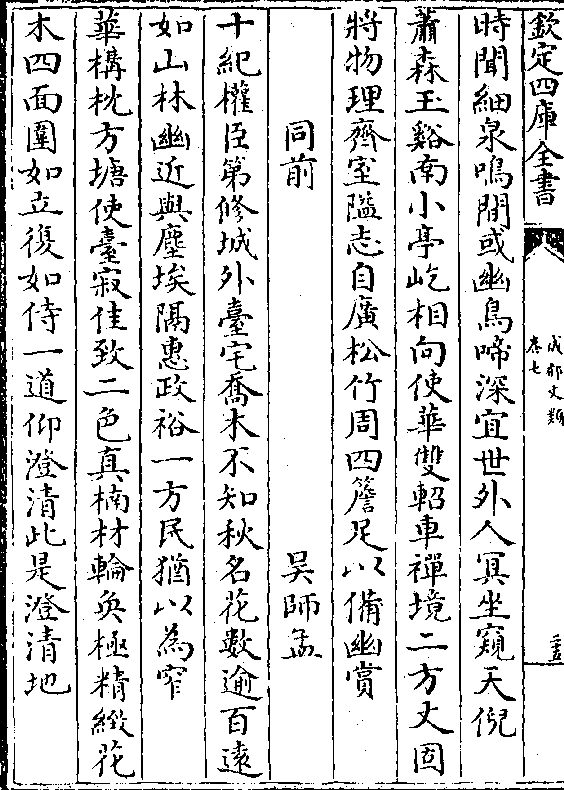 欽定四庫全書
成都文類
卷七
時聞細泉鳴間或幽鳥啼深宜世外人冥坐窺天倪
蕭森玉谿南小亭屹相向使華雙軺車禪境二方丈固
將物理齊室隘志自廣松竹周四簷足以備幽賞
同前 吴師孟
十紀權臣第修城外臺宅喬木不知秋名花數逾百遠
如山林幽近與塵埃隔惠政裕一方民猶以為窄
華構枕方塘使臺寂佳致二色真楠材輪奐極精緻花
木四面圍如立復如侍一道仰澄清此是澄清地